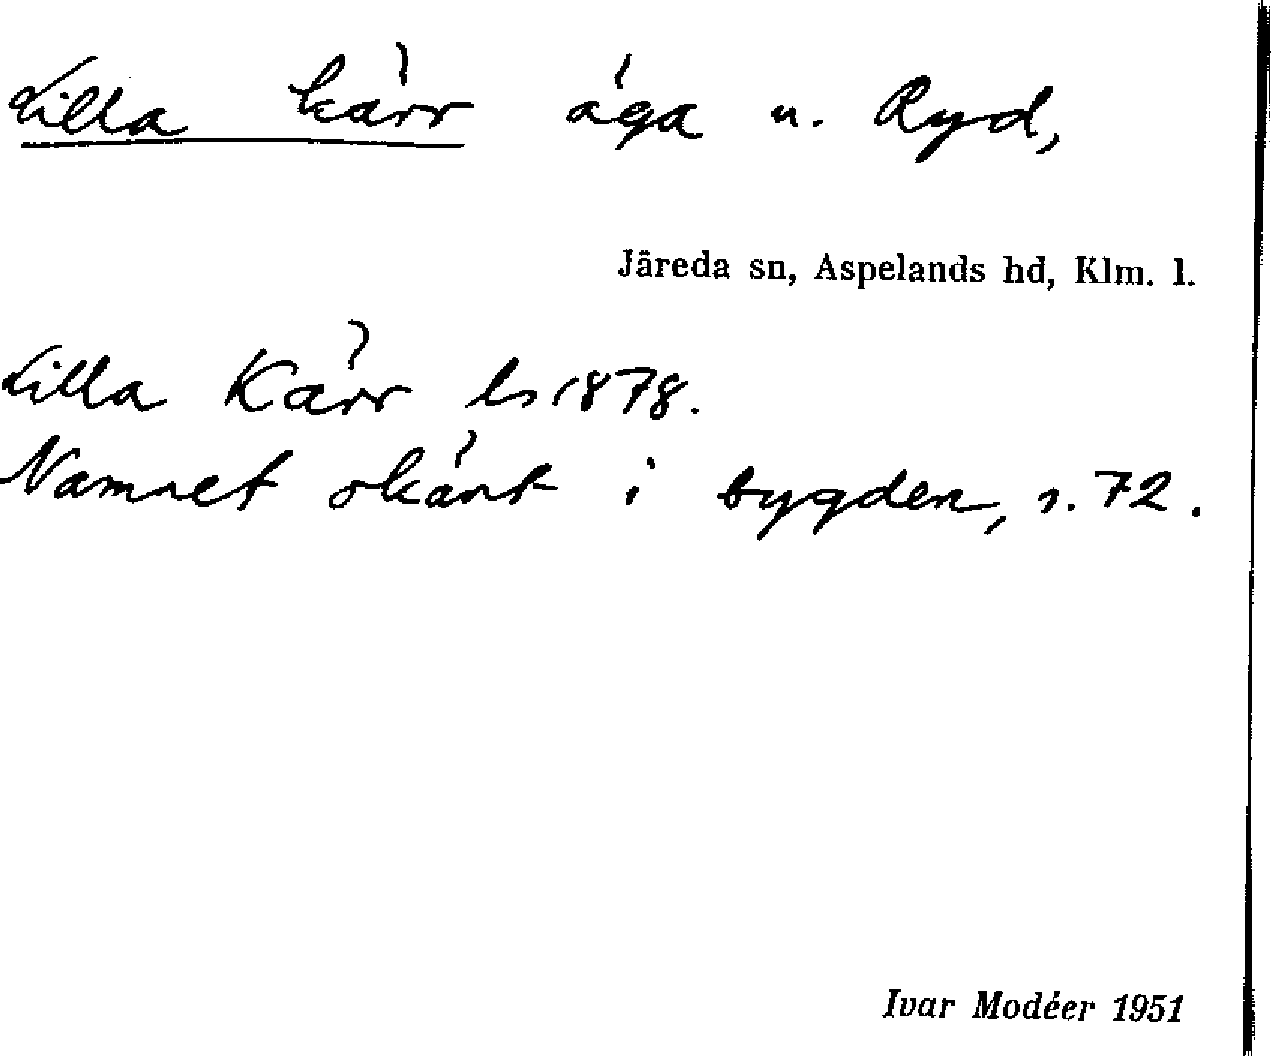 Lilla kärr äga u. Ryd,
Järeda sn, Aspelands hd, Klm. l.
Lilla Kärr ls 1878.
Namnet okänt i bygden, s. 72.
Ivar Modéer 1951